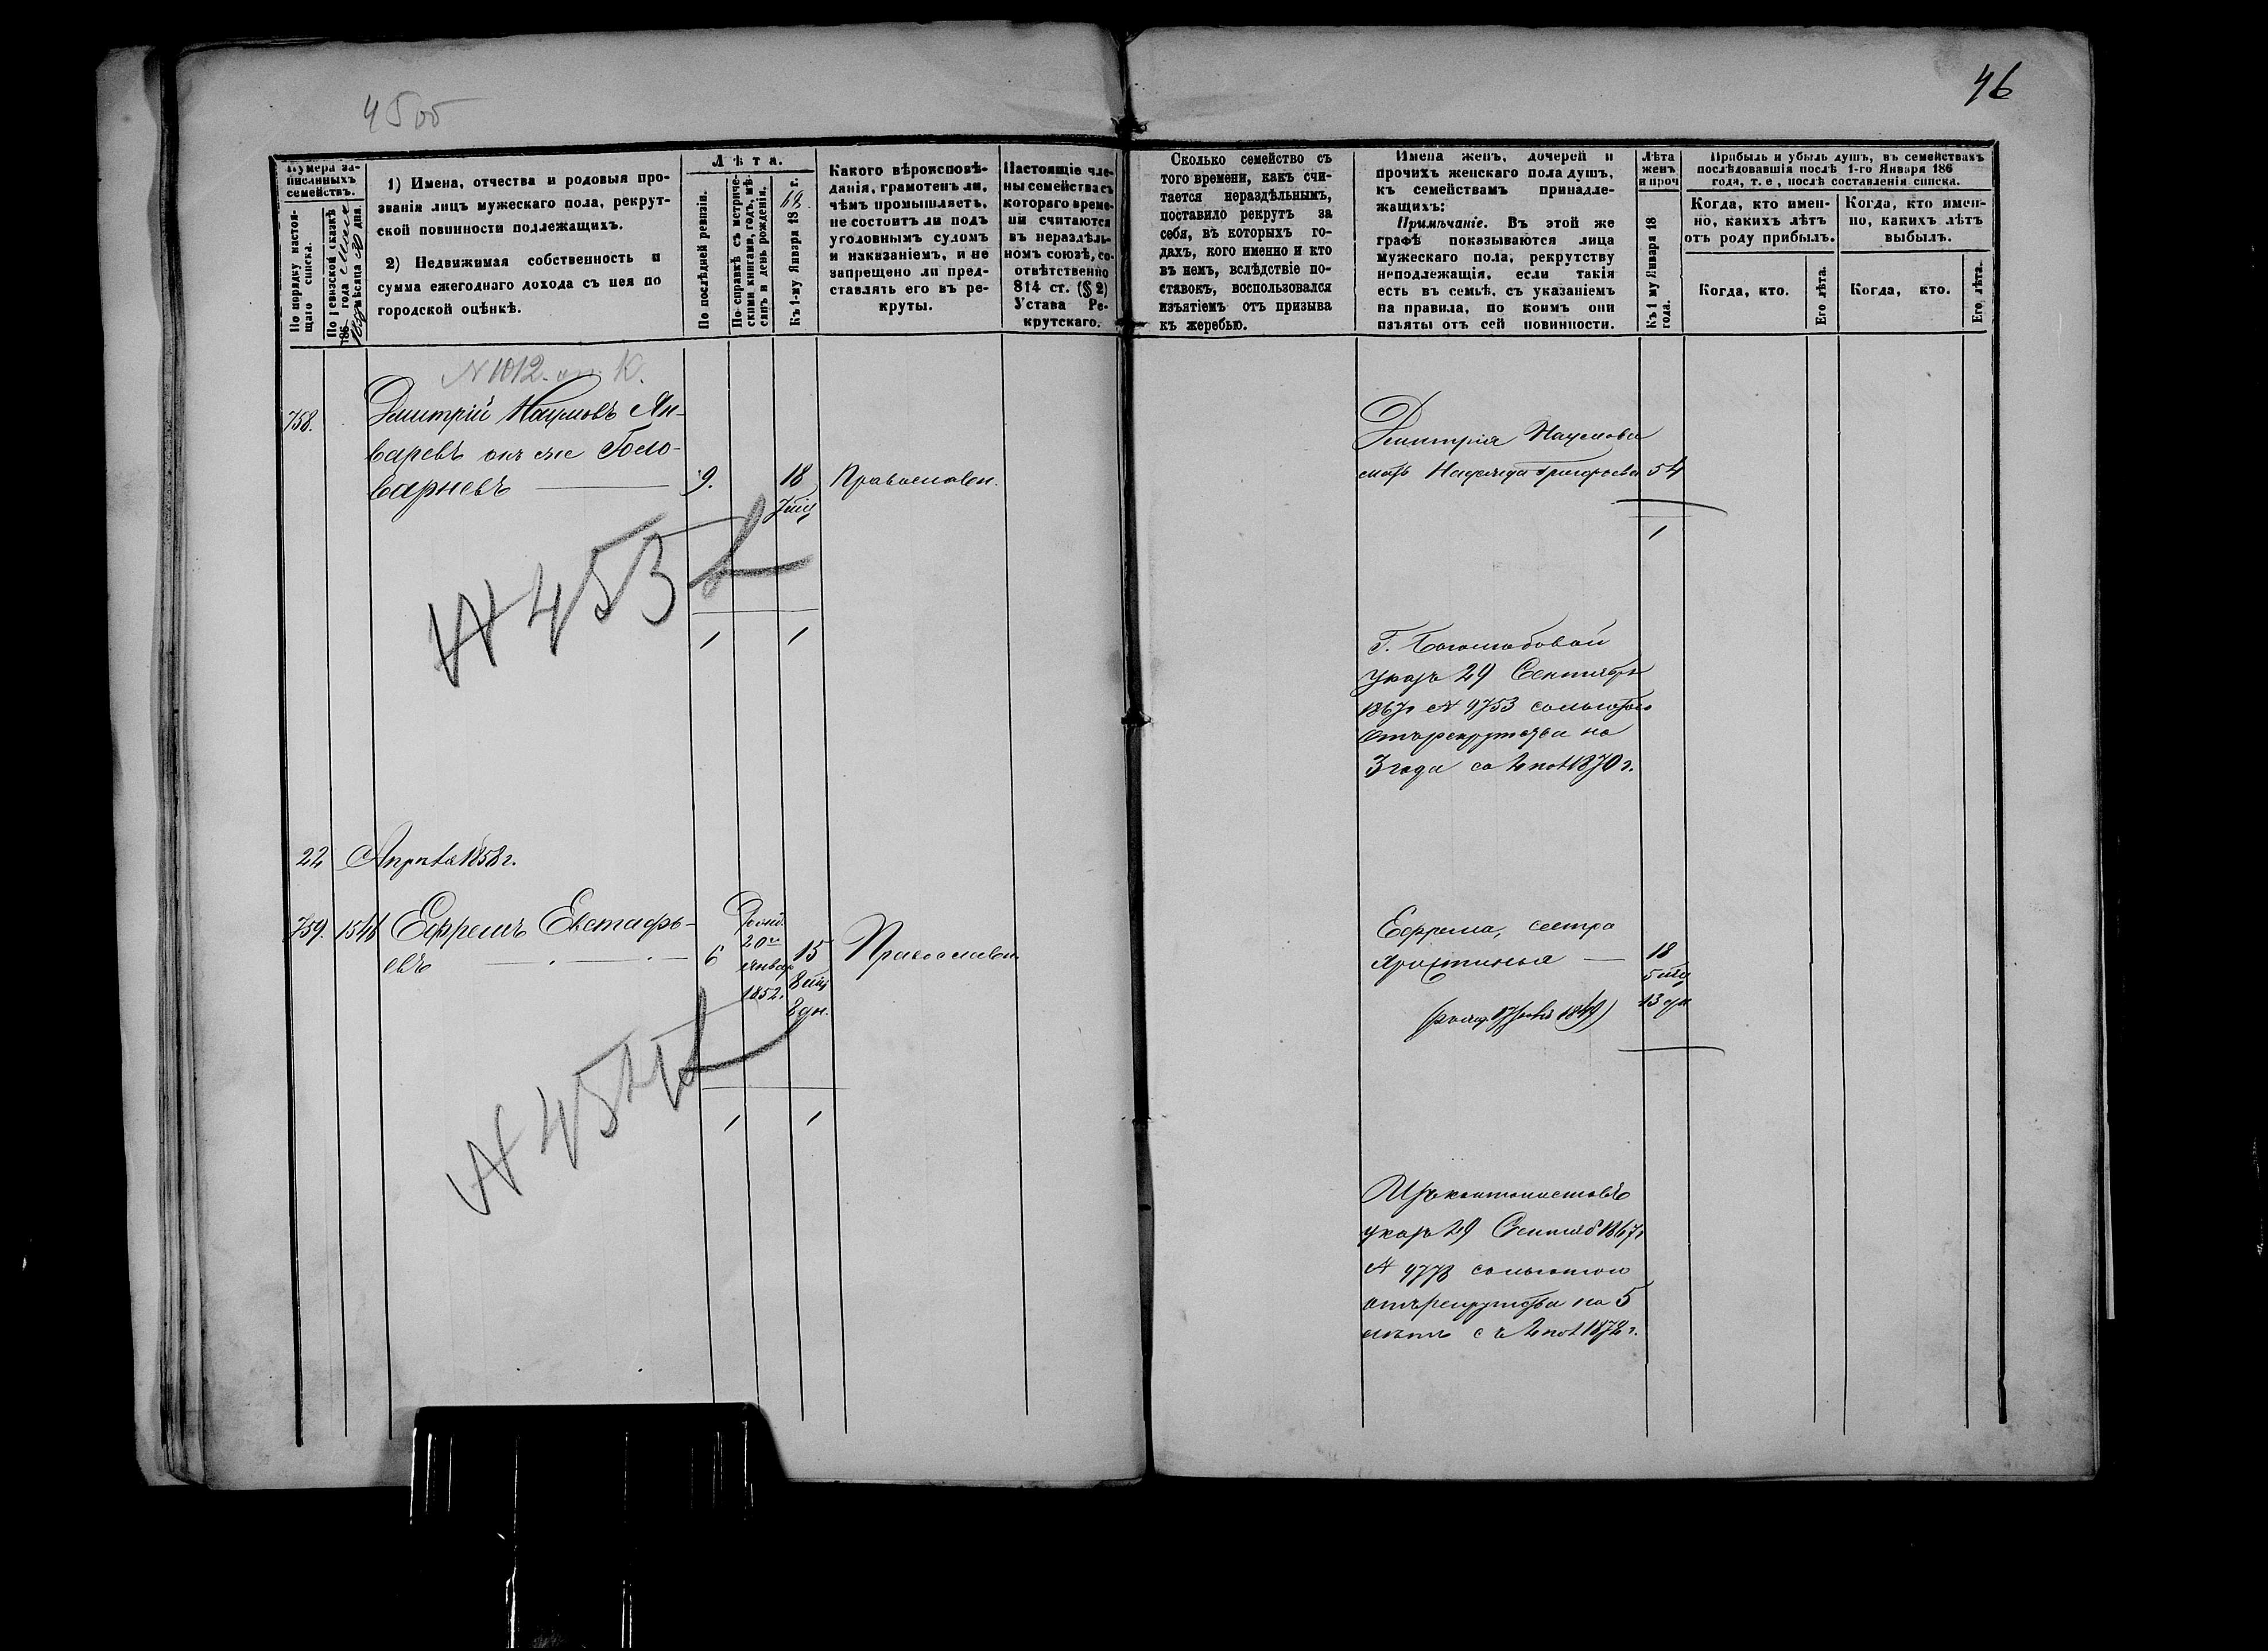 45об
46
Нумера за-
писанныхъ
семействъ.
По порядку настоя-
щаго списка.
По ревизской сказкѣ
186 года
мѣсяца 30 дня.
1) Имена, отчества и родовыя про-
званія лицъ мужескаго пола, рекрут-
ской повинности подлежащихъ.
2) Недвижимая собственность и
сумма ежегоднаго дохода съ нея по
городской оцѣнкѣ.
Лѣта.
По послѣдней ревизіи.
По справкѣ съ метриче-
скими книгами, годъ, мѣ-
сяцъ и день рожденія.
Къ 1-му Января 1868 г.
Какого вѣроисповѣ-
данія, грамотенъ ли,
чѣмъ промышляетъ,
не состоитъ ли подъ
уголовнымъ судомъ
и наказаніемъ, и не
запрещено ли пред-
ставлять его въ ре-
круты.
Настоящіе чле-
ны семейства съ
котораго време-
ни считаются
въ нераздѣль-
номъ союзѣ, со-
отвѣтственно
814 ст. (§ 2)
Устава Ре-
крутскаго.
Сколько семейство съ
того времени, какъ счи-
тается нераздѣльнымъ,
поставило рекрутъ за
себя, въ которыхъ го-
дахъ, кого именно и кто
въ немъ, вслѣдствіе по-
ставокъ, воспользовался
изъятіемъ отъ призыва
къ жеребью.
Имена женъ, дочерей и
прочихъ женскаго пола душъ,
къ семействамъ принадле-
жащихъ:
Примѣчаніе. Въ этой же
графѣ показываются лица
мужескаго пола, рекрутству
неподлежащія, если такія
есть въ семьѣ, съ указаніемъ
на правила, по коимъ они
изъяты отъ сей повинности.
Лѣта
женъ
и проч
Къ 1 му Января 18
года.
Прибыль и убыль душъ, въ семействахъ
послѣдовавшія послѣ 1-го Января 186
года, т. е, послѣ составленія списка.
Когда, кто имен-
но, какихъ лѣтъ
отъ роду прибылъ.
Когда, кто имен-
но, какихъ лѣтъ
выбылъ.
Когда, кто.
Его лѣта.
Когда, кто.
Его лѣта.
N 1012.
758.
Дмитрій Наумовъ Ян-
варевъ онъ же Голо-
варневъ
9.
18
7 мѣц
Православн.
N 453
1 1
Дмитрія Наумова
мать Надежда Григорьева 54
1
указъ 29 Сентября
1867г N 9753
отъ рекрутства на
3 года со 2 пол 1870 г.
22 Апрѣля 1858 г.
759. 1546 Ефремъ Евстафь-
евъ
6
Рожд.
20го
январ
1852.
15
8 мѣц
2 дн.
Православн
N 454
1 1
Ефрема, сестра
Христинья
18
5 мѣц
13 дн
Изъ кантонистовъ
указъ 29 Сентяб 1867г
N 9778
отъ рекрутства на 5
лѣтъ съ 2 пол 1872 г.